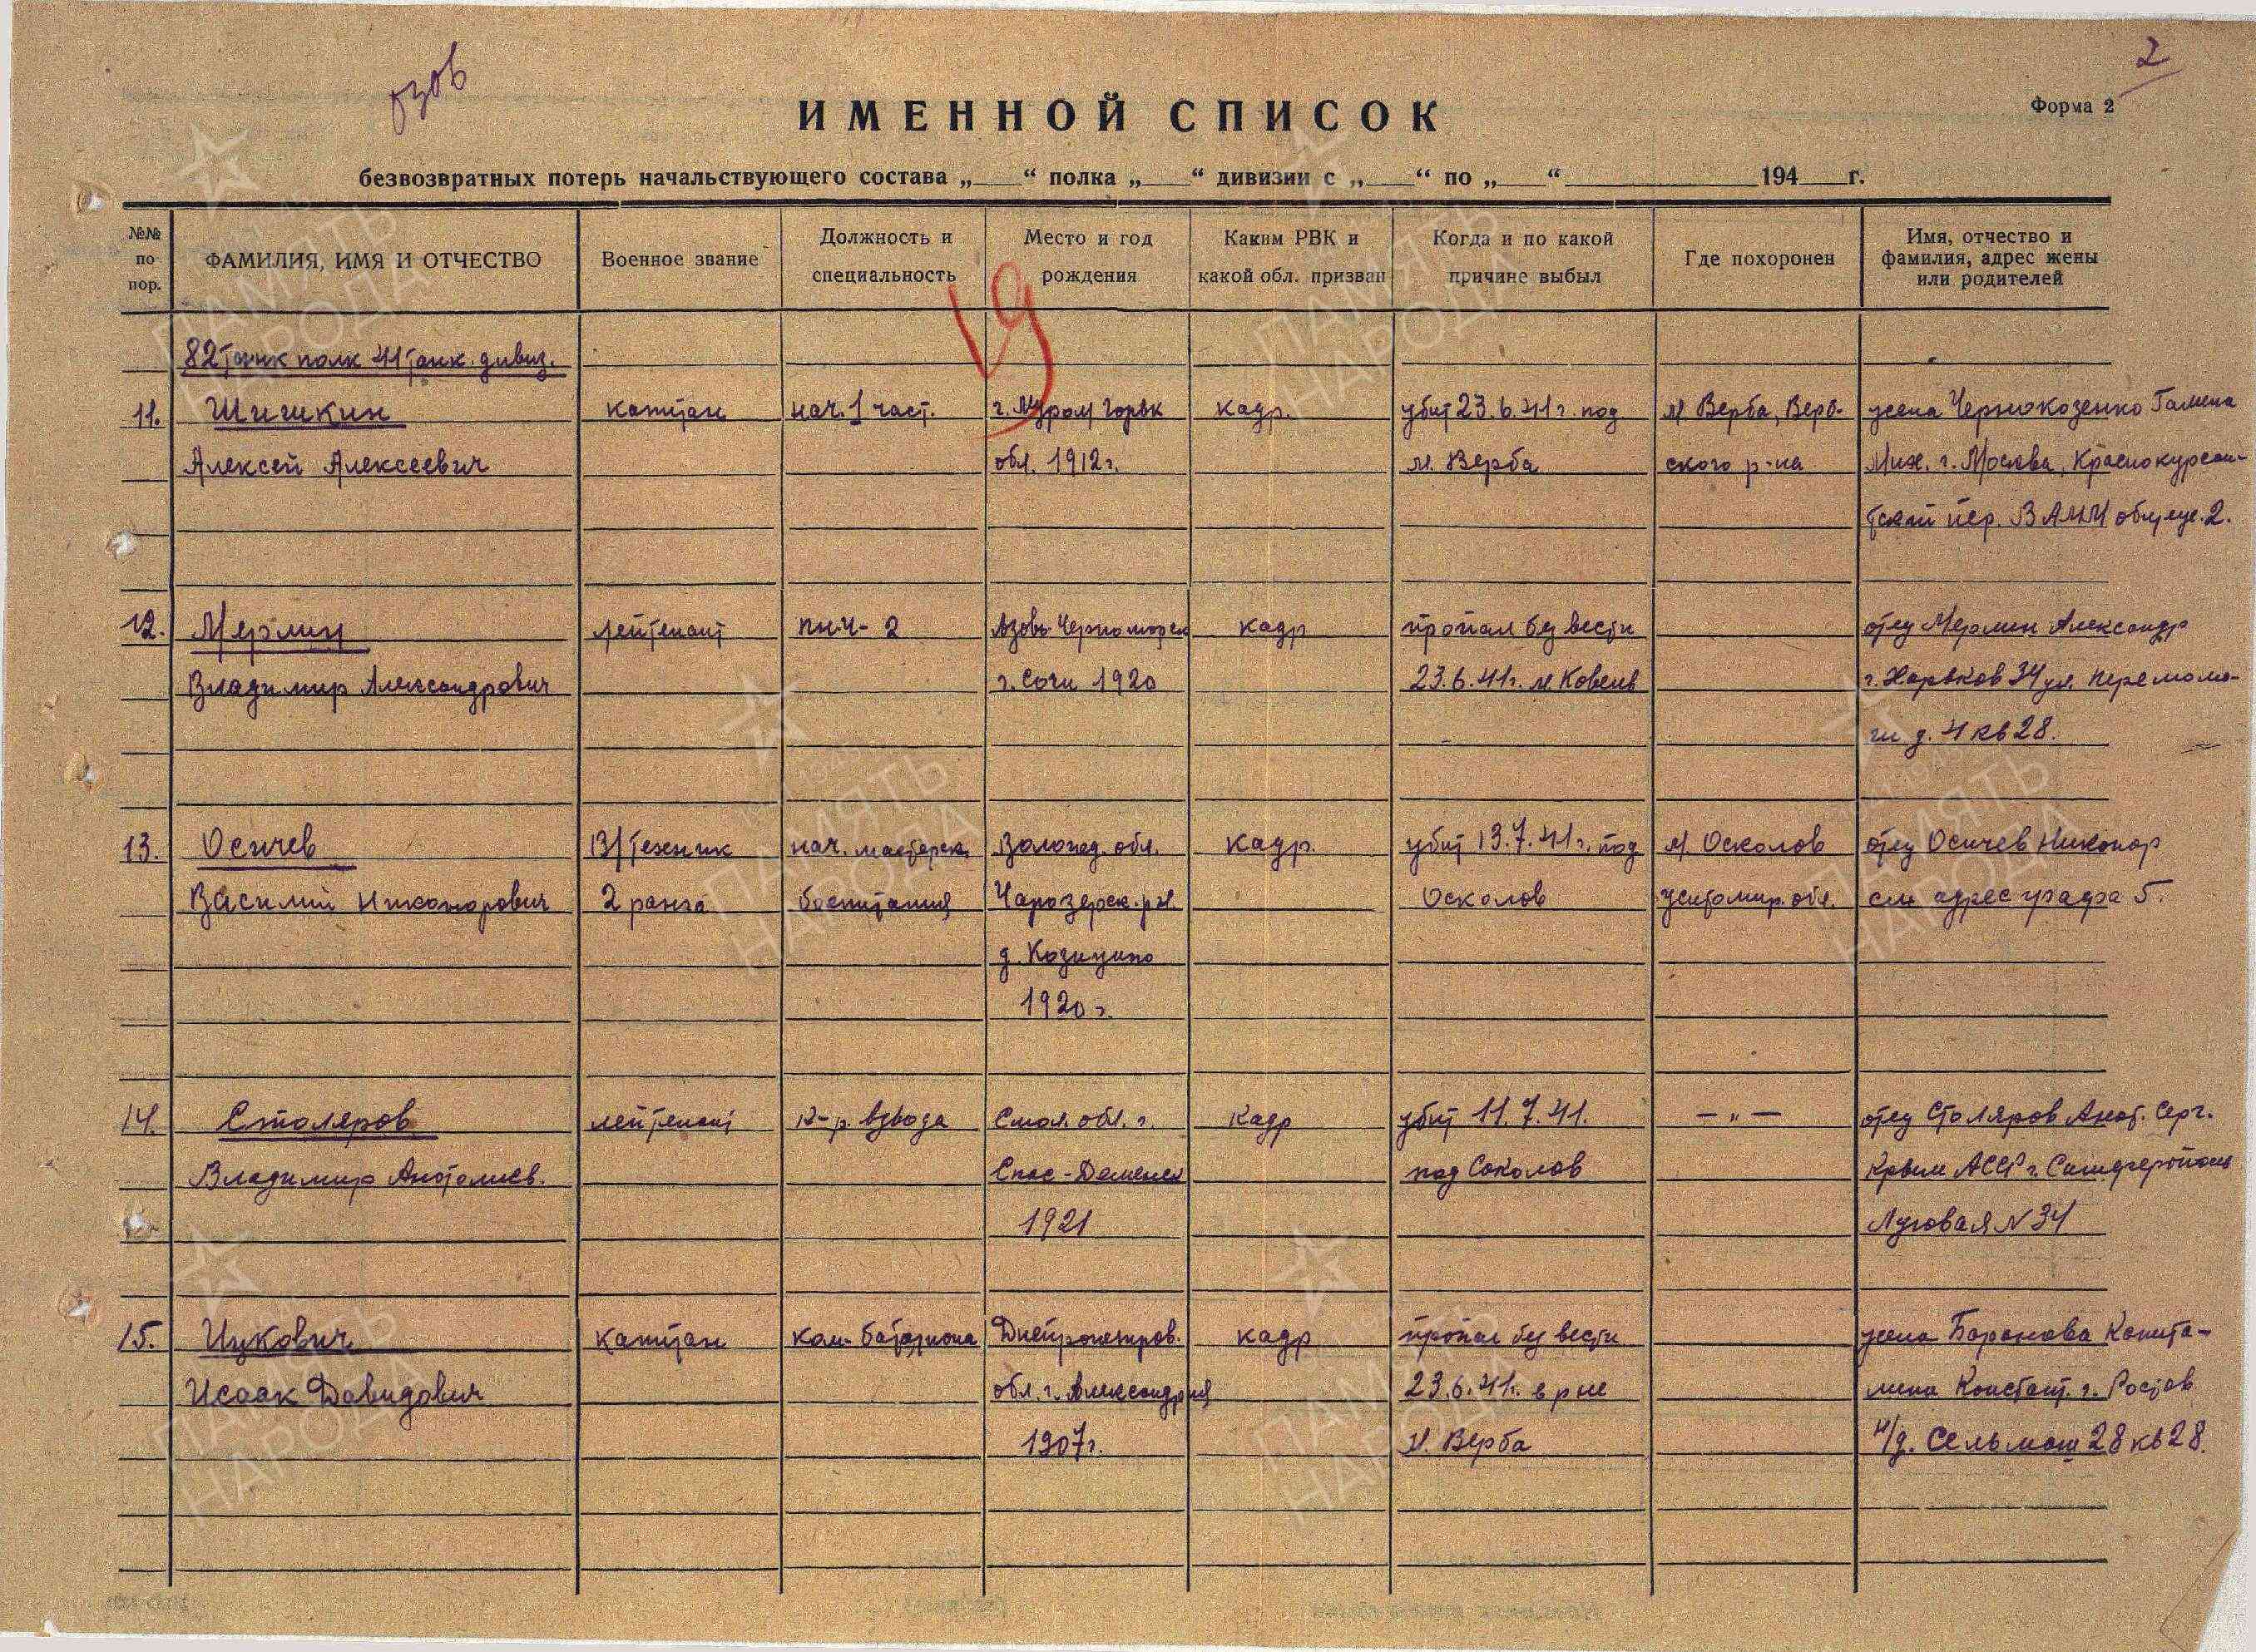 2
ИМЕННОЙ СПИСОК
Форма 2
безвозвратных потерь начальствующего состава „___“ полка „___“ дивизии с „___“ по „___“ 194 г.
№№ по пор.
ФАМИЛИЯ, ИМЯ И ОТЧЕСТВО
Военное звание
Должность и специальность
Место и год рождения
Каким РВК и какой обл. призван
Когда и по какой причине выбыл
Где похоронен
Имя, отчество и фамилия, адрес жены или родителей
19
82 танк полк 41 танк. дивиз.
11. Шишкин капитан нач. 1 част. г. Муром Горьк кадр. убит 23.6.41 г. под м Верба, Верб- жена Чернокозенко Галина
Алексей Алексеевич обл. 1912 г. м. Верба ского р-на Мих. г. Москва, Краснокурсан-
тский пер. ВАММ общеж. 2.
12. Мерлин лейтенант пнч-2 Азово-Черноморск кадр пропал без вести отец Мерлин Александр
Владимир Александрович г. Сочи 1920 23.6.41 г. м Ковель г. Харьков 34 ул.
д. 4 кв 28.
13. Осичев в/техник нач. мастерск. Вологод. обл. кадр. убит 13.7.41 г. под м Осколов отец Осичев Никонор
Василий Никонорович 2 ранга Чарозерск. р-н. Осколов житомир. обл. см адрес графа 5.
д. Козицино
1920 г.
14. Столяров лейтенант к-р. взвода Смол. обл. г. кадр убит 11.7.41. — „ — отец Столяров Анат. Серг.
Владимир Анатолиев. Спас-Деменск под Соколов Крым АССР г. Симферополь
1921 Луговая № 34
15. Ицкович капитан ком. батальона Днепропетров. кадр пропал без вести жена Баранова Капито-
Исаак Давидович обл. г. Александрия 23.6.41 г. в р не лина Констант. г. Ростов
1907 г. м. Верба н/д. Сельмаш 28 кв 28.
ПАМЯТЬ НАРОДА